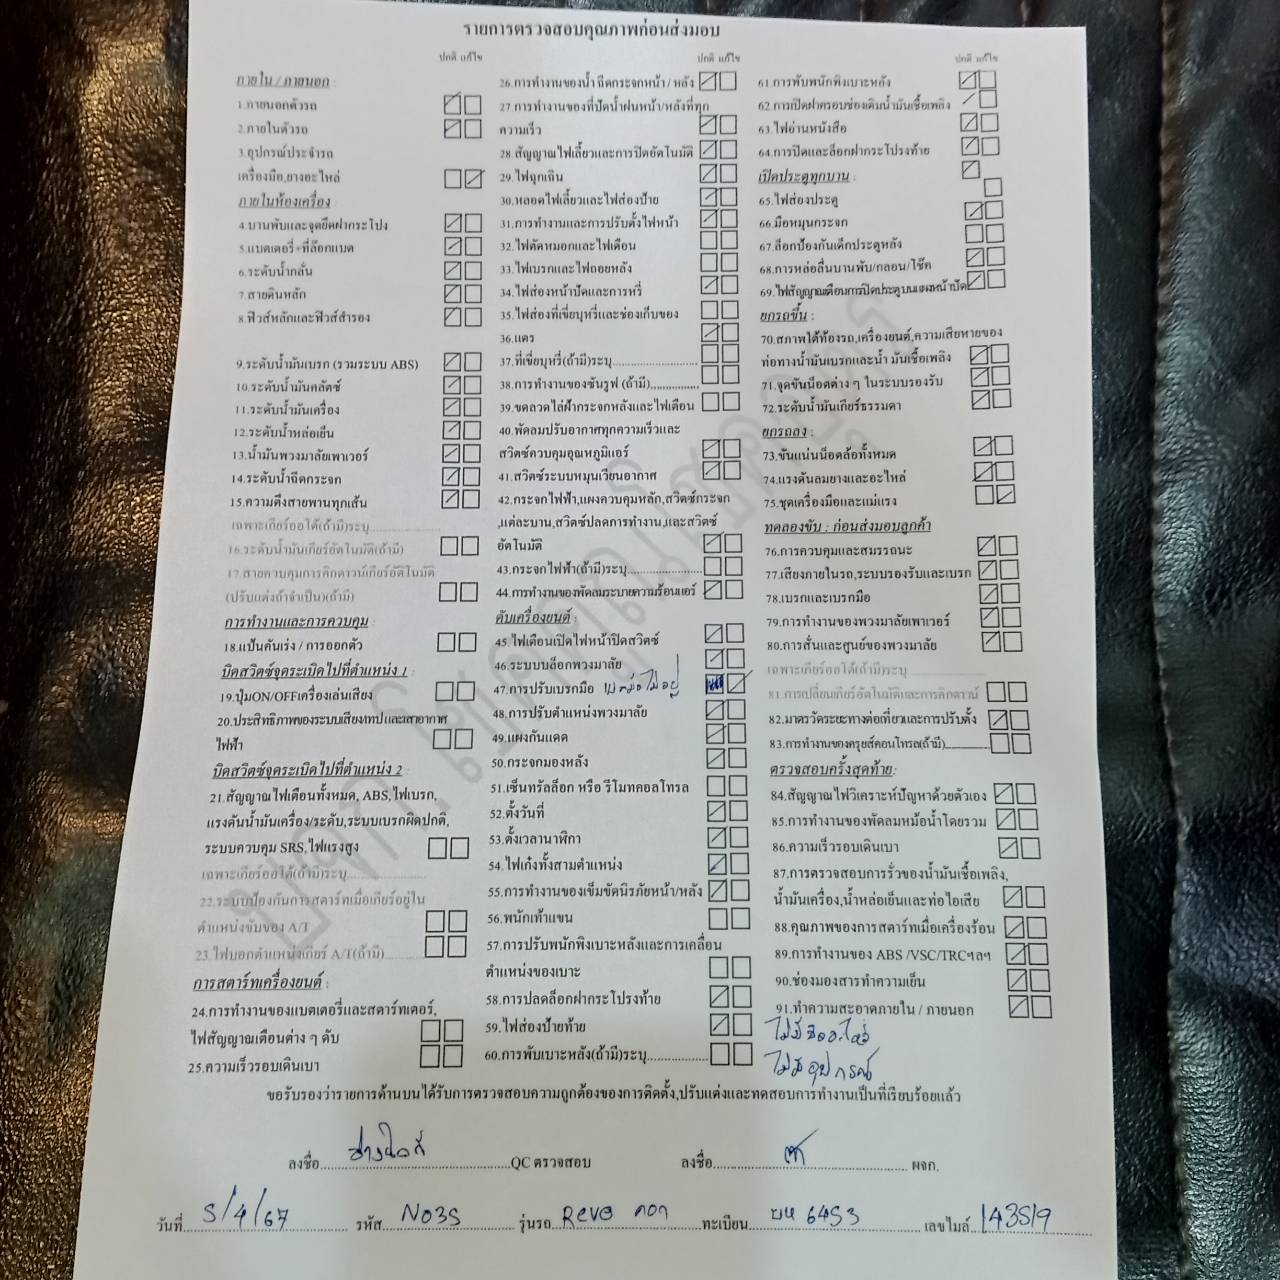 รายการตรวจสอบคุณภาพก่อนส่งมอบ
ปกติ แก้ไข
ภายใน / ภายนอก :
1.ภายนอกตัวรถ
2.ภายในตัวรถ
3.อุปกรณ์ประจำรถ
เครื่องมือ,ยางอะไหล่
ภายในห้องเครื่อง :
4.บานพับและจุดยึดฝากระโปง
5.แบตเตอรี่+ที่ล๊อกแบต
6.ระดับน้ำกลั่น
7.สายดินหลัก
8.ฟิวส์หลักและฟิวส์สำรอง
9.ระดับน้ำมันเบรก (รวมระบบ ABS)
10.ระดับน้ำมันคลัตซ์
11.ระดับน้ำมันเครื่อง
12.ระดับน้ำหล่อเย็น
13.น้ำมันพวงมาลัยเพาเวอร์
14.ระดับน้ำฉีดกระจก
15.ความตึงสายพานทุกเส้น
เฉพาะเกียร์ออโต้(ถ้ามี)ระบุ
16.ระดับน้ำมันเกียร์อัตโนมัติ(ถ้ามี)
17.สายควบคุมการคิกดาวน์เกียร์อัตโนมัติ
(ปรับแต่งถ้าจำเป็น)(ถ้ามี)
การทำงานและการควบคุม :
18.แป้นคันเร่ง / การออกตัว
บิดสวิตซ์จุดระเบิดไปที่ตำแหน่ง 1
19.ปุ่มON/OFFเครื่องเล่นเสียง
20.ประสิทธิภาพของระบบเสียง/เทปและเสาอากาศ
ไฟฟ้า
บิดสวิตซ์จุดระเบิดไปที่ตำแหน่ง 2 :
21.สัญญาณไฟเตือนทั้งหมด, ABS,ไฟเบรก,
แรงดันน้ำมันเครื่อง/ระดับ,ระบบเบรกผิดปกติ,
ระบบควบคุม SRS,ไฟแรงสูง
เฉพาะเกียร์ออโต้(ถ้ามี)ระบุ
22.ระบบป้องกันการสตาร์ทเมื่อเกียร์อยู่ใน
ตำแหน่งขับของ A/T
23.ไฟบอกตำแหน่งเกียร์ A/T(ถ้ามี)
การสตาร์ทเครื่องยนต์ :
24.การทำงานของแบตเตอรี่และสตาร์ทเตอร์,
ไฟสัญญาณเตือนต่าง ๆ ดับ
25.ความเร็วรอบเดินเบา
ปกติ แก้ไข
26.การทำงานของน้ำฉีดกระจกหน้า / หลัง
27.การทำงานของที่ปัดน้ำฝนหน้า/หลังที่ทุก
ความเร็ว
28.สัญญาณไฟเลี้ยวและการปิดอัตโนมัติ
29.ไฟฉุกเฉิน
30.หลอดไฟเลี้ยวและไฟส่องป้าย
31.การทำงานและการปรับตั้งไฟหน้า
32.ไฟตัดหมอกและไฟเตือน
33.ไฟเบรกและไฟถอยหลัง
34.ไฟส่องหน้าปัดและการหรี่
35.ไฟส่องที่เขี่ยบุหรี่และช่องเก็บของ
36.แตร
37.ที่เขี่ยบุหรี่(ถ้ามี)ระบุ
38.การทำงานของซันรูฟ (ถ้ามี)
39.ขดลวดไล่ฝ้ากระจกหลังและไฟเตือน
40.พัดลมปรับอากาศทุกความเร็วและ
สวิตซ์ควบคุมอุณหภูมิแอร์
41.สวิตซ์ระบบหมุนเวียนอากาศ
42.กระจกไฟฟ้า,แผงควบคุมหลัก,สวิตซ์กระจก
,แต่ละบาน,สวิตซ์ปลดการทำงาน,และสวิตซ์
อัตโนมัติ
43.กระจกไฟฟ้า(ถ้ามี)ระบุ
44.การทำงานของพัดลมระบายความร้อนแอร์
ดับเครื่องยนต์ :
45.ไฟเตือนเปิดไฟหน้าปิดสวิตซ์
46.ระบบบล็อกพวงมาลัย
47.การปรับเบรกมือ เบรคมือไม่อยู่
48.การปรับตำแหน่งพวงมาลัย
49.แผงกันแดด
50.กระจกมองหลัง
51.เซ็นทรัลล็อก หรือ รีโมทคอลโทรล
52.ตั้งวันที่
53.ตั้งเวลานาฬิกา
54.ไฟเก๋งทั้งสามตำแหน่ง
55.การทำงานของเข็มขัดนิรภัยหน้า/หลัง
56.พนักเท้าแขน
57.การปรับพนักพิงเบาะหลังและการเคลื่อน
ตำแหน่งของเบาะ
58.การปลดล็อกฝากระโปรงท้าย
59.ไฟส่องป้ายท้าย
60.การพับเบาะหลัง(ถ้ามี)ระบุ
ปกติ แก้ไข
61.การพับพนักพิงเบาะหลัง
62.การเปิดฝาครอบช่องเติมน้ำมันเชื้อเพลิง
63.ไฟอ่านหนังสือ
64.การปิดและล็อกฝากระโปรงท้าย
เปิดประตูทุกบาน :
65.ไฟส่องประตู
66.มือหมุนกระจก
67.ล็อกป้องกันเด็กประตูหลัง
68.การหล่อลื่นบานพับ/กลอน/โช๊ค
69.ไฟสัญญาณเตือนการปิดประตูบนแผงหน้าปัด
ยกรถขึ้น :
70.สภาพใต้ท้องรถ,เครื่องยนต์,ความเสียหายของ
ท่อทางน้ำมันเบรกและน้ำมันเชื้อเพลิง
71.จุดขันน็อตต่าง ๆ ในระบบรองรับ
72.ระดับน้ำมันเกียร์ธรรมดา
ยกรถลง :
73.ขันแน่นน็อตล้อทั้งหมด
74.แรงดันลมยางและอะไหล่
75.ชุดเครื่องมือและแม่แรง
ทดลองขับ : ก่อนส่งมอบลูกค้า
76.การควบคุมและสมรรถนะ
77.เสียงภายในรถ,ระบบรองรับและเบรก
78.เบรกและเบรกมือ
79.การทำงานของพวงมาลัยเพาเวอร์
80.การสั่นและศูนย์ของพวงมาลัย
เฉพาะเกียร์ออโต้(ถ้ามี)ระบุ
81.การเปลี่ยนเกียร์อัตโนมัติและการคิกดาวน์
82.มาตรวัดระยะทางต่อเที่ยวและการปรับตั้ง
83.การทำงานของครุยส์คอนโทรล(ถ้ามี)
ตรวจสอบครั้งสุดท้าย:
84.สัญญาณไฟวิเคราะห์ปัญหาด้วยตัวเอง
85.การทำงานของพัดลมหม้อน้ำโดยรวม
86.ความเร็วรอบเดินเบา
87.การตรวจสอบการรั่วของน้ำมันเชื้อเพลิง,
น้ำมันเครื่อง,น้ำหล่อเย็นและท่อไอเสีย
88.คุณภาพของการสตาร์ทเมื่อเครื่องร้อน
89.การทำงานของ ABS /VSC/TRCฯลฯ
90.ช่องมองสารทำความเย็น
91.ทำความสะอาดภายใน / ภายนอก
ไม่มีอะไหล่
ไม่มีอุปกรณ์
ขอรับรองว่ารายการด้านบนได้รับการตรวจสอบความถูกต้องของการติดตั้ง,ปรับแต่งและทดสอบการทำงานเป็นที่เรียบร้อยแล้ว
ลงชื่อ QC ตรวจสอบ ลงชื่อ ผจก.
วันที่ 5/4/67 รหัส N035 รุ่นรถ Revo ทะเบียน 6453 เลขไมล์ 143519